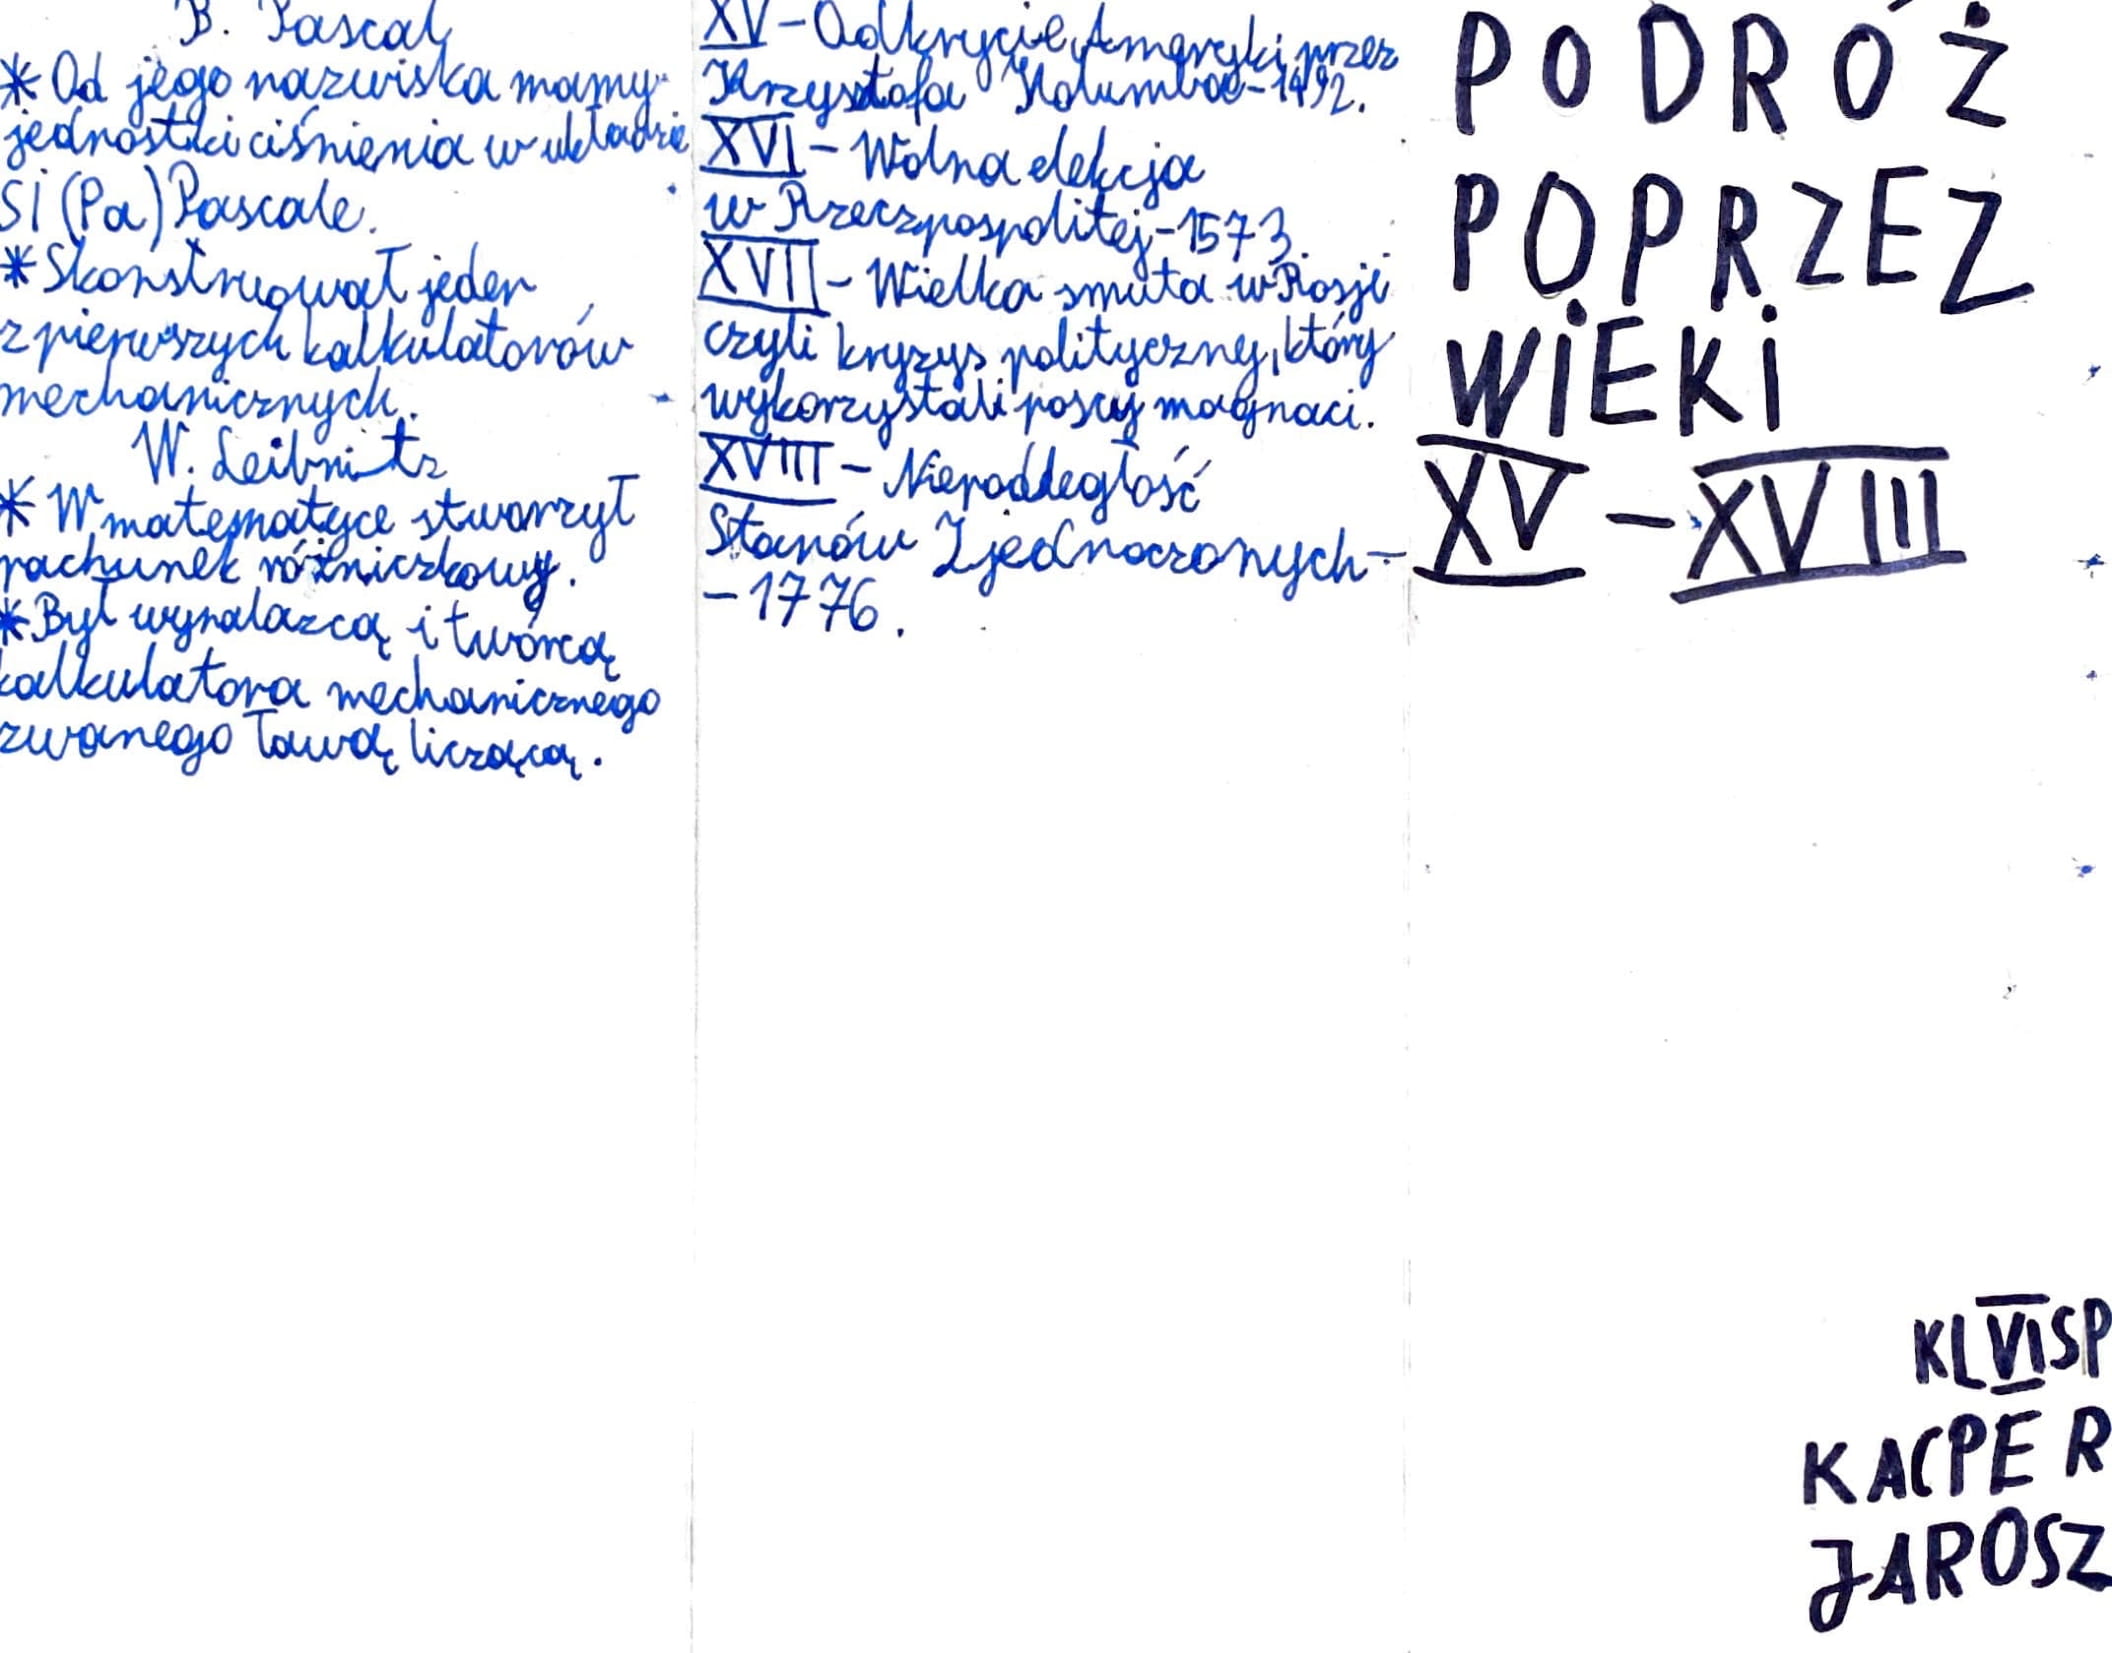 B. Pascal
* Od jego nazwiska mamy
jednostki ciśnienia w układzie
SI (Pa) Pascale.
* Skonstruował jeden
z pierwszych kalkulatorów
mechanicznych.
W. Leibnitz
* W matematyce stworzył
rachunek różniczkowy.
* Był wynalazcą i twórcą
kalkulatora mechanicznego
zwanego ławą liczącą.
XV – Odkrycie Ameryki przez
Krzysztofa Kolumba – 1492.
XVI – Wolna elekcja
w Rzeczpospolitej – 1573.
XVII – Wielka smuta w Rosji
czyli kryzys polityczny, który
wykorzystali poscy magnaci.
XVIII – Niepodległość
Stanów Zjednoczonych –
– 1776.
PODRÓŻ
POPRZEZ
WIEKI
XV – XVIII
KL VI SP
KACPER
JAROSZ